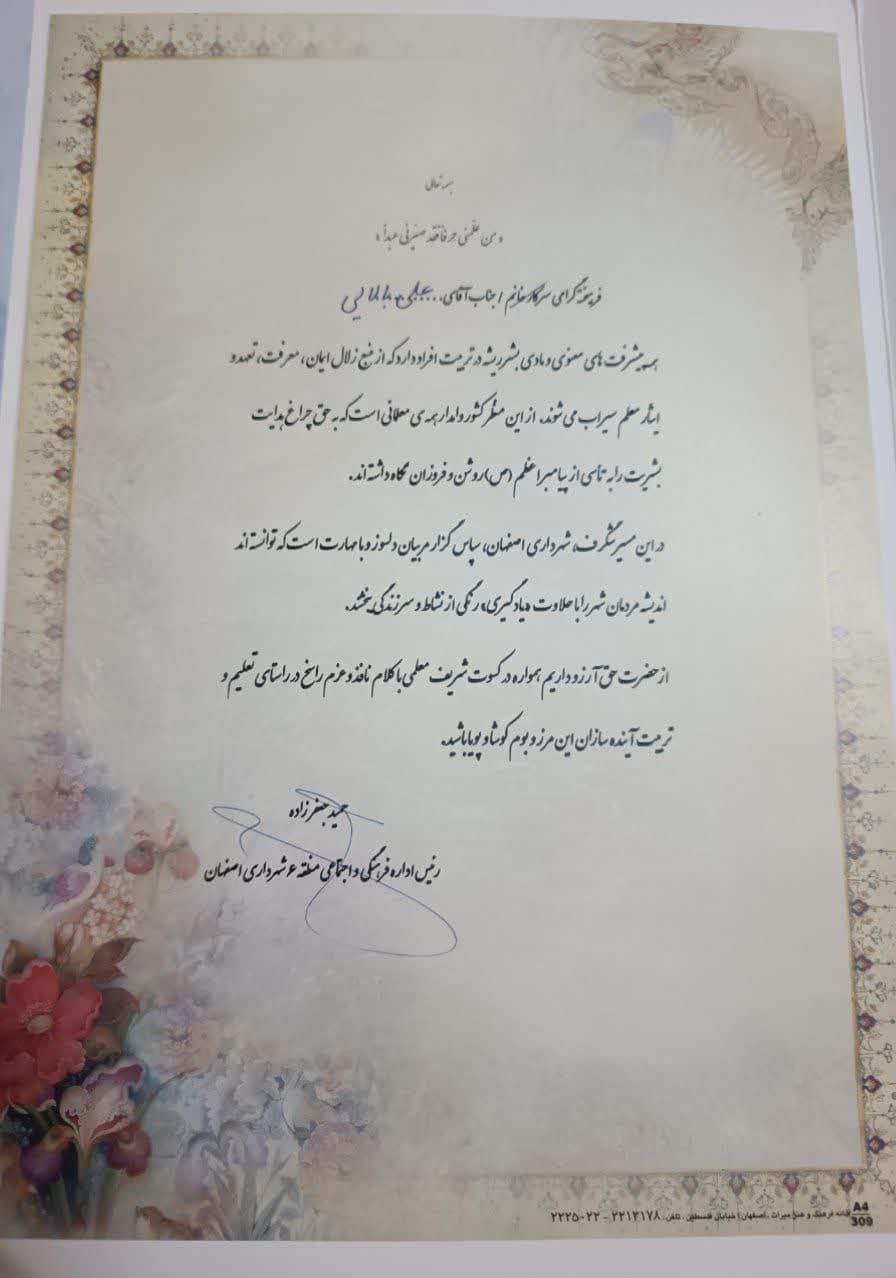 بسمه تعالی
«من علّمنی حرفاً فقد صیّرنی عبداً»
فرهیخته گرامی سرکار خانم / جناب آقای... علی بابایی
همه پیشرفت های معنوی و مادی بشر ریشه در تربیت افراد دارد که از منبع زلال ایمان، معرفت، تعهد و
ایثار معلم سیراب می شوند. از این منظر کشور وامدار همه ی معلمانی است که به حق چراغ هدایت
بشریت را به تأسی از پیامبر اعظم (ص) روشن و فروزان نگاه داشته اند.
در این مسیر شگرف، شهرداری اصفهان، سپاس گزار مربیان دلسوز و با مهارت است که توانسته اند
اندیشه مردمان شهر را با حلاوت «یادگیری» رنگی از نشاط و سرزندگی بخشند.
از حضرت حق آرزو داریم همواره در کسوت شریف معلمی با کلام نافذ و عزم راسخ در راستای تعلیم و
تربیت آینده سازان این مرز و بوم کوشا و پویا باشید.
حمید جعفرزاده
رئیس اداره فرهنگی و اجتماعی منطقه ۶ شهرداری اصفهان
A4
309
خانه فرهنگ و هنر میراث . اصفهان: خیابان فلسطین . تلفن: ۲۲۱۳۱۷۸ - ۲۲۲۵۰۲۲